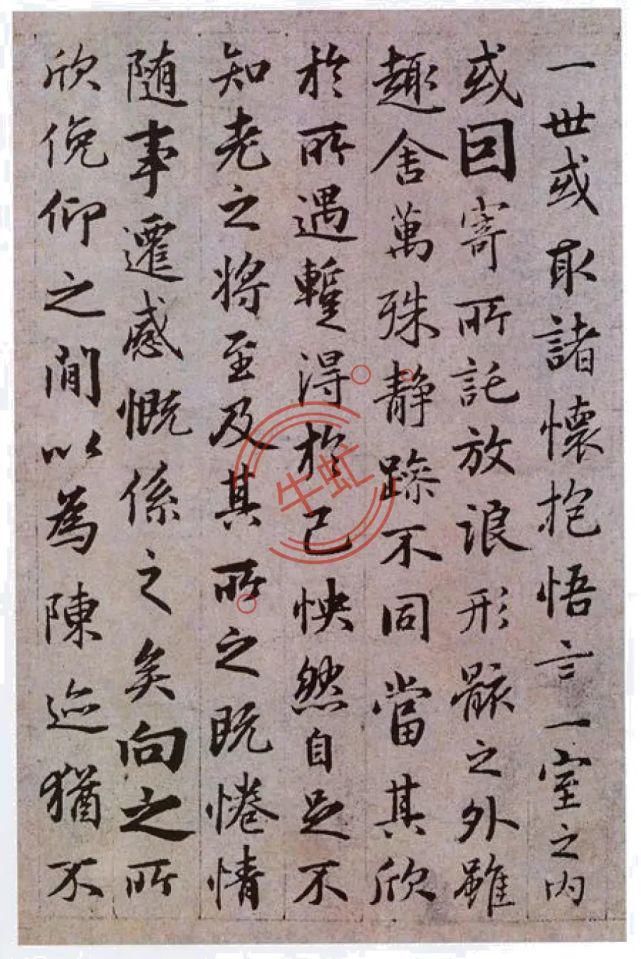 一世或取諸懷抱悟言一室之內
或因寄所託放浪形骸之外雖
趣舍萬殊静躁不同當其欣
於所遇蹔得於己怏然自足不
知老之將至及其所之既惓情
随事遷感慨係之矣向之所
欣俛仰之間以為陳迹猶不
牛虹